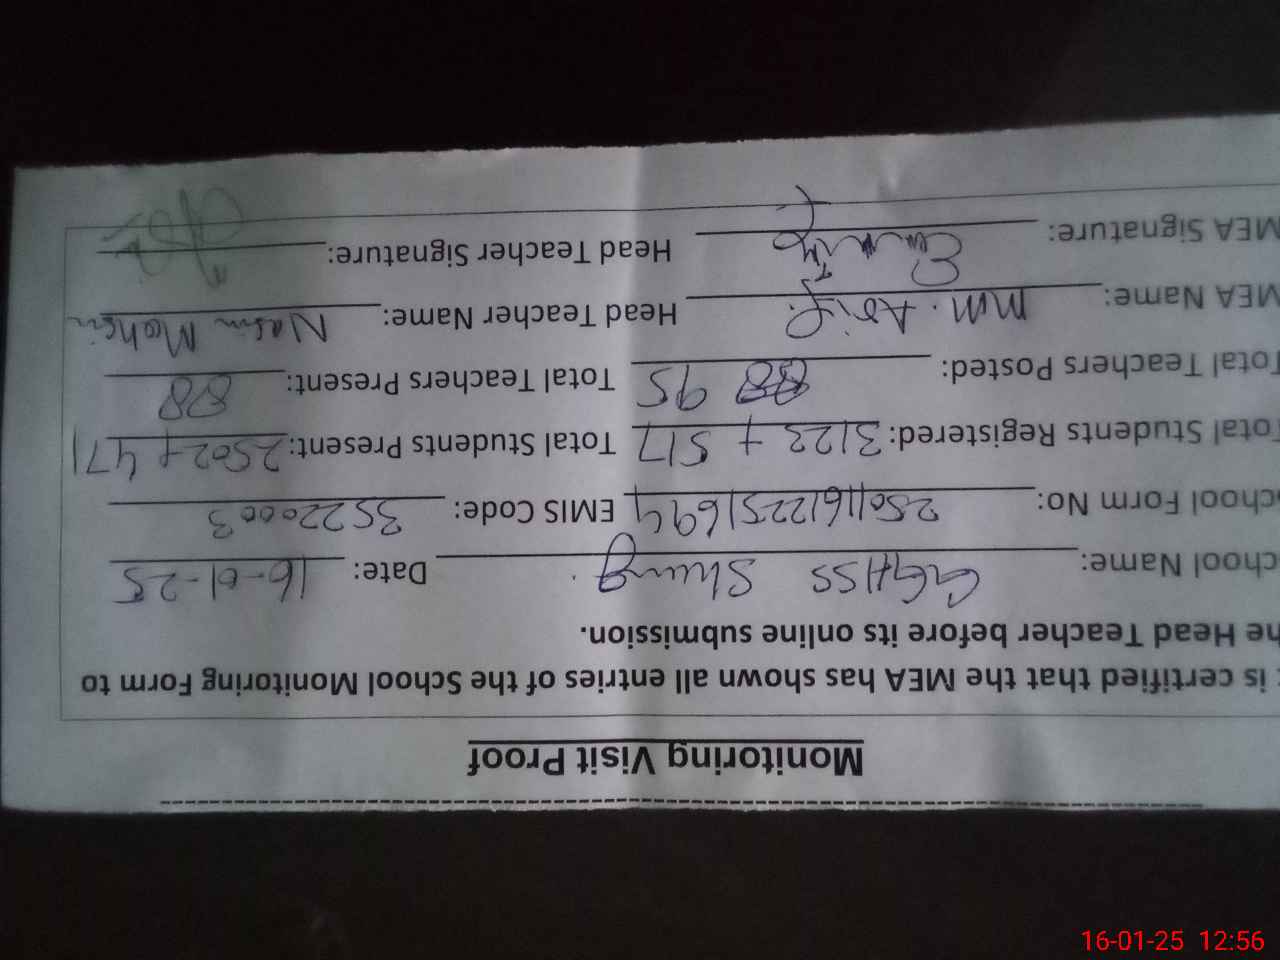 Monitoring Visit Proof
is certified that the MEA has shown all entries of the School Monitoring Form to
he Head Teacher before its online submission.
chool Name: GGHSS Date: 16-01-25
chool Form No: 25011612251694 EMIS Code: 35220003
Total Students Registered: 3123 + 517 Total Students Present: 2502 + 471
Total Teachers Posted: 95 Total Teachers Present: 88
MEA Name: MM. Asif Head Teacher Name:
MEA Signature: Head Teacher Signature:
16-01-25 12:56